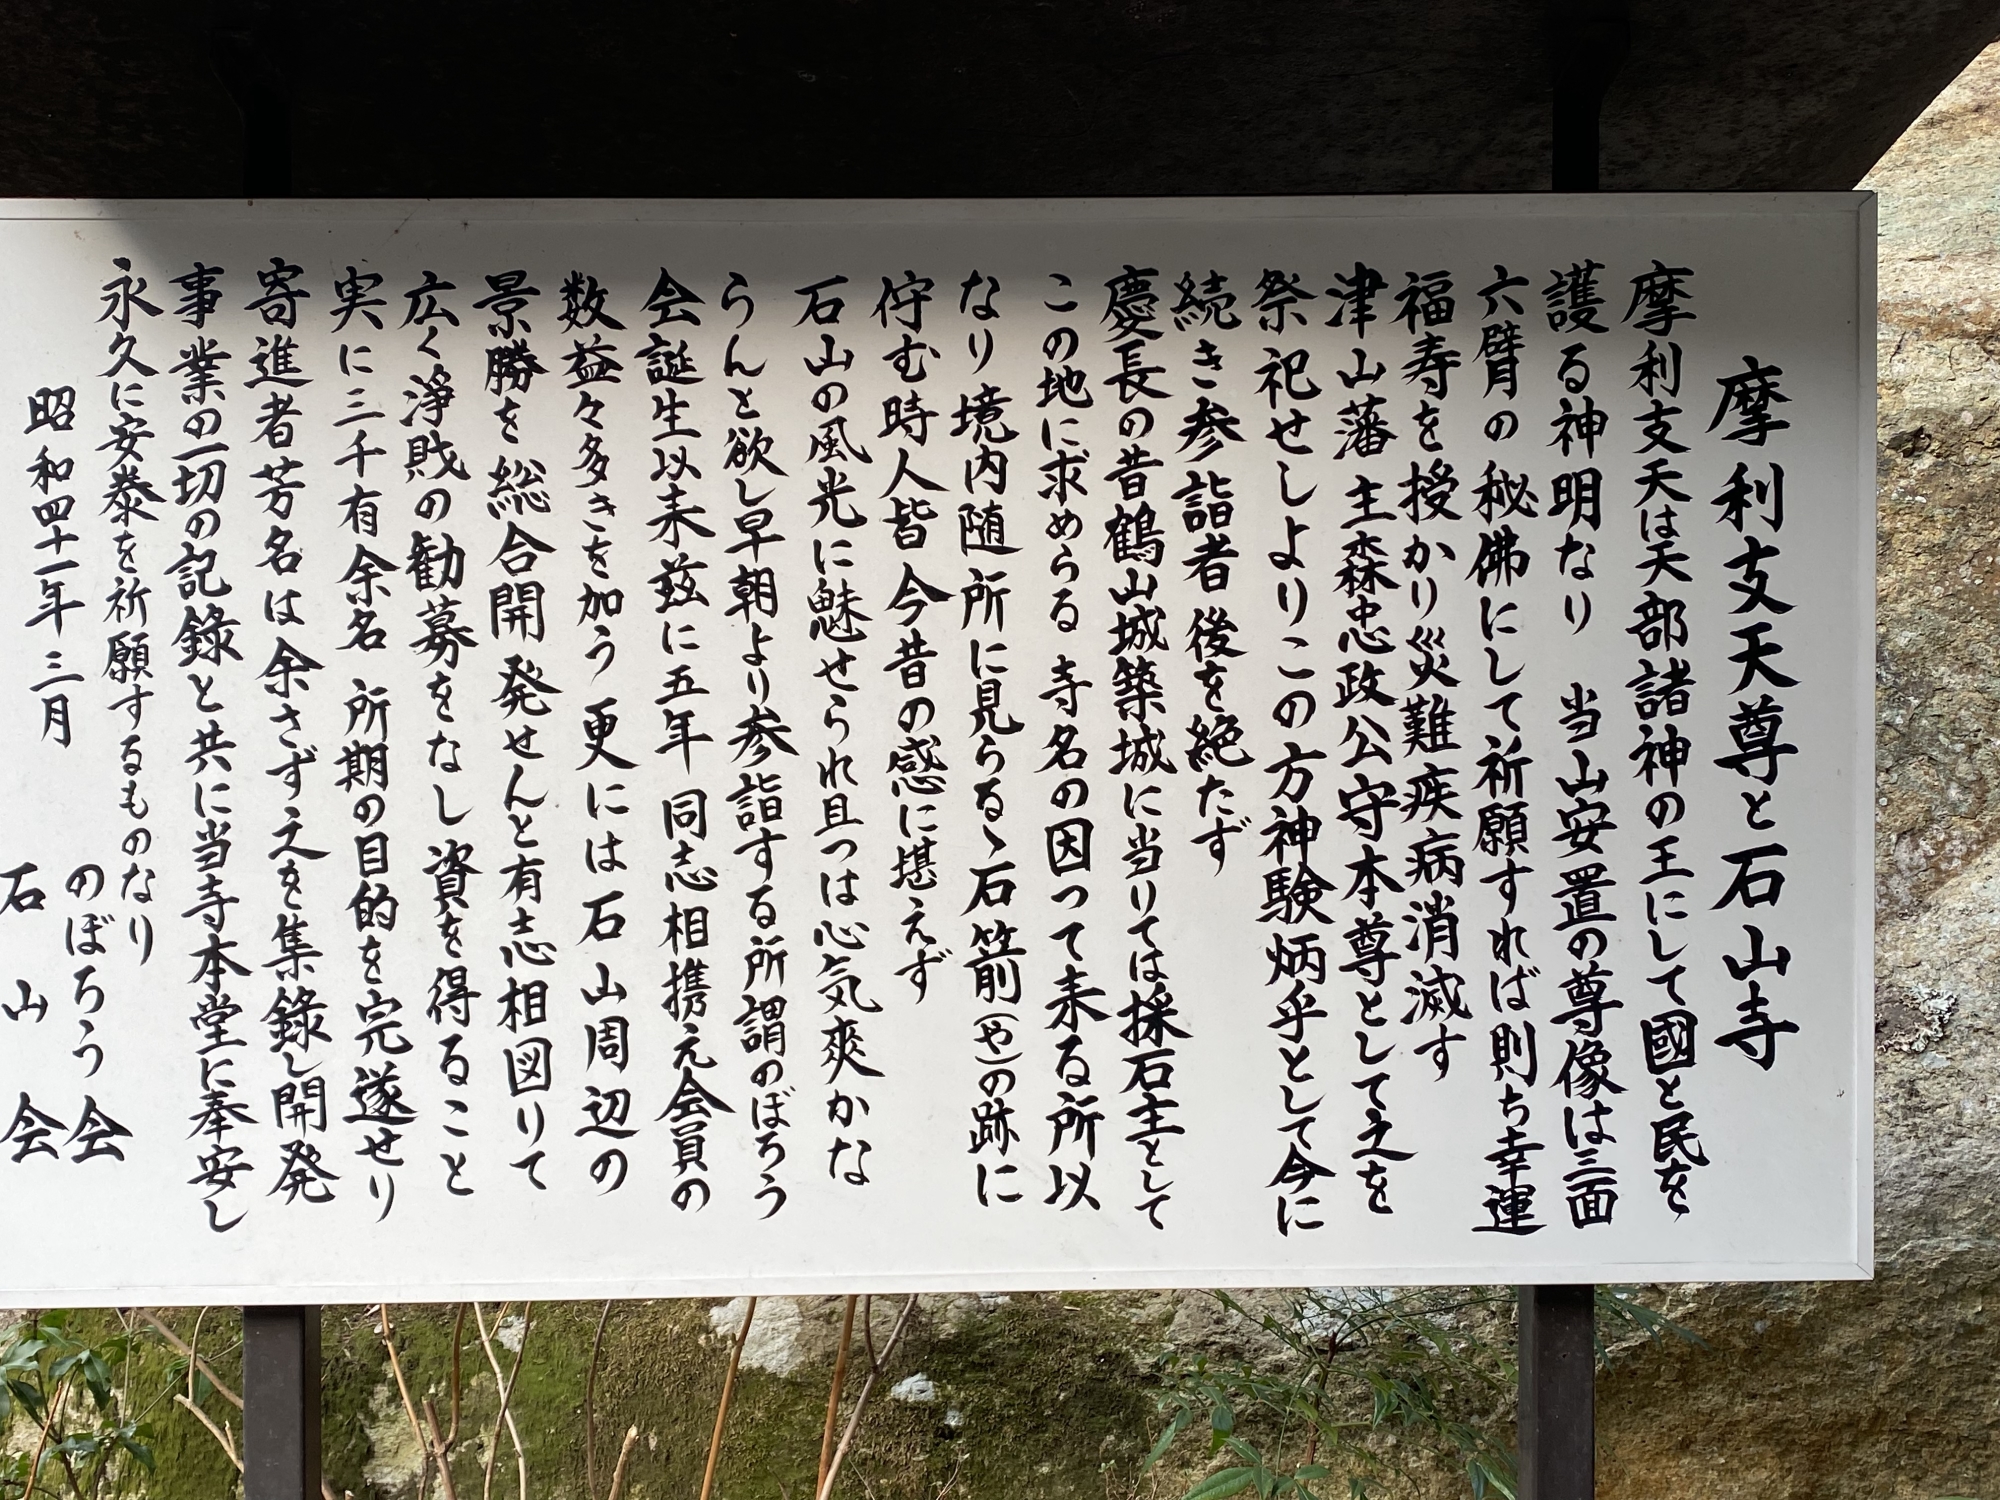 摩利支天尊と石山寺
摩利支天は天部諸神の王にして國と民を
護る神明なり　当山安置の尊像は三面
六臂の秘佛にして祈願すれば則ち幸運
福寿を授かり災難疾病消滅す
津山藩主森忠政公守本尊として之を
祭祀せしよりこの方神験炳乎として今に
続き参詣者後を絶たず
慶長の昔鶴山城築城に当りては採石主として
この地に求めらる　寺名の因つて来る所以
なり境内随所に見らるゝ石箭（や）の跡に
佇む時人皆今昔の感に堪えず
石山の風光に魅せられ且つは心気爽かな
らんと欲し早朝より参詣する所謂のぼろう
会誕生以来茲に五年　同志相携え会員の
数益々多きを加う　更には石山周辺の
景勝を総合開発せんと有志相図りて
広く淨財の勧募をなし資を得ること
実に三千有余名　所期の目的を完遂せり
寄進者芳名は余さず之を集錄し開発
事業の一切の記錄と共に当寺本堂に奉安し
永久に安泰を祈願するものなり
昭和四十一年三月
のぼろう会
石山会